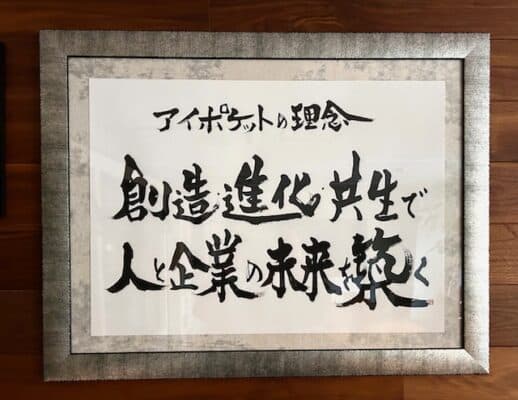 アイポケットの理念
創造・進化・共生で
人と企業の未来を築く